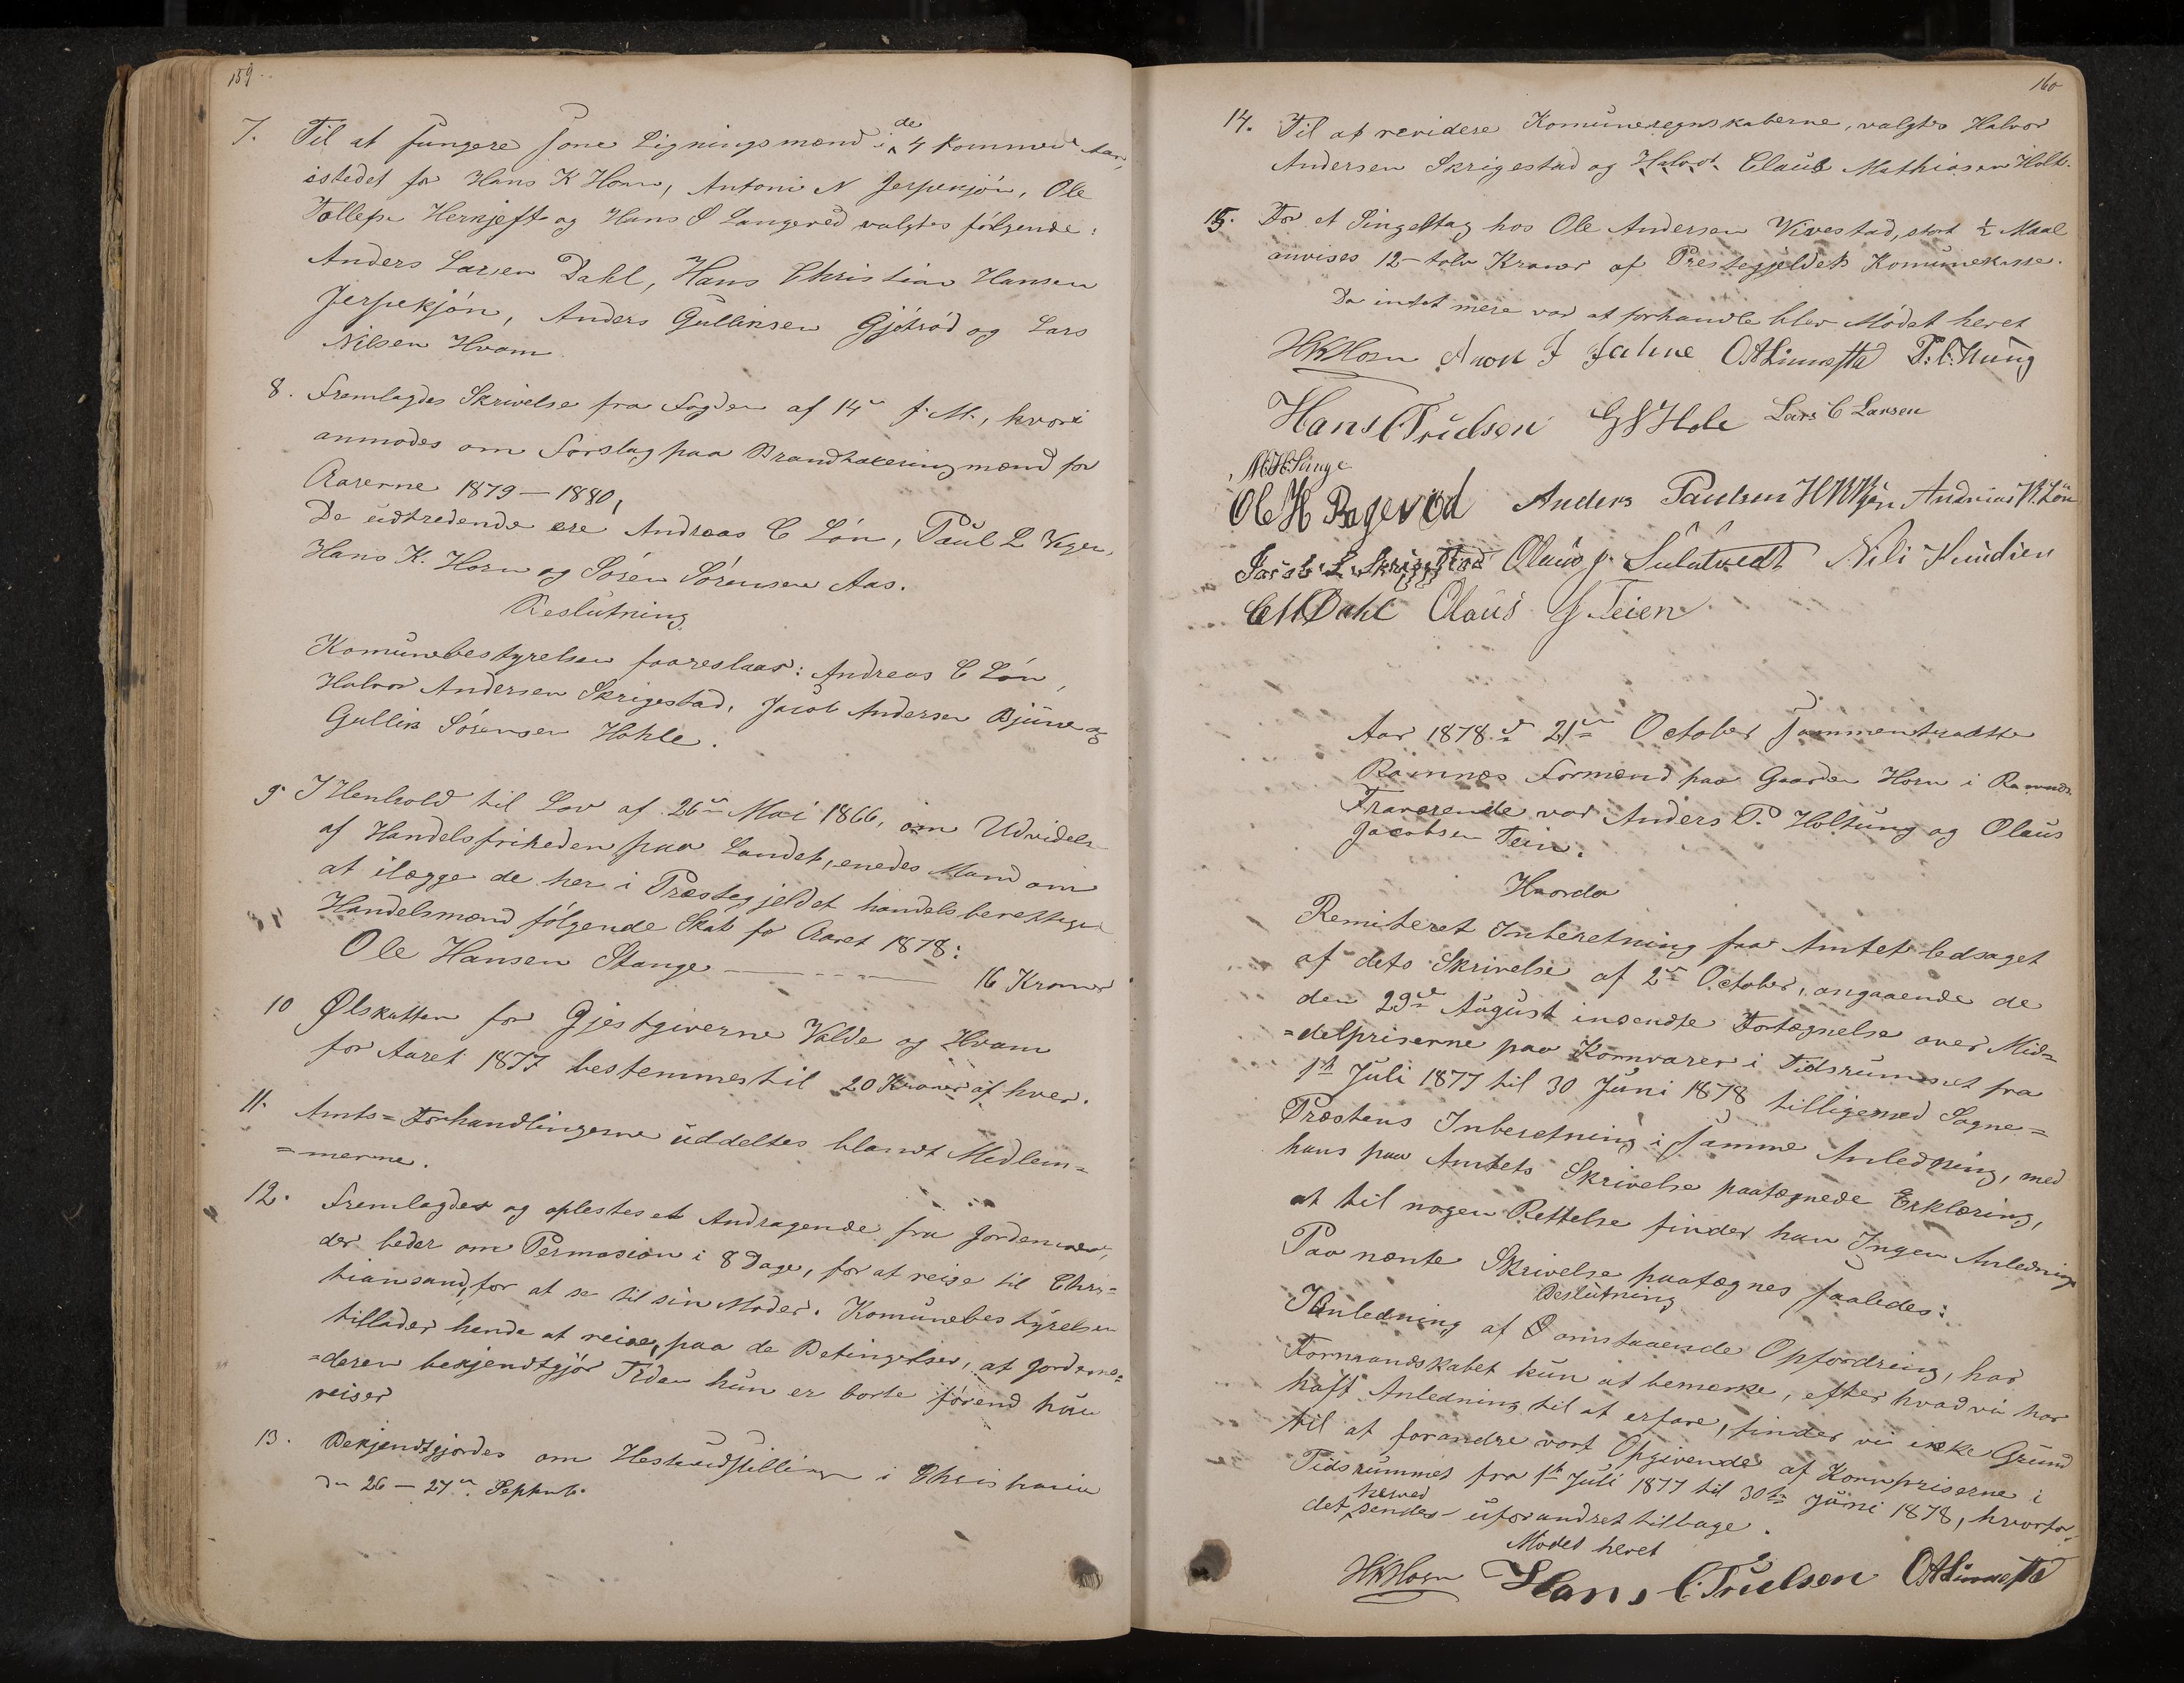 159
7. Til at fungere som Ligningsmænd i de 4 kommende Aar,
istedet for Hans K Horn, Antoni N Jerpekjøn, Ole
Tollefs. Herkjeft og Hans S Langeved valgtes følgende:
Anders Larsen Dahl, Hans Christian Hansen
Jerpekjøn, Anders Gulliksen Gjötröd og Lars
Nilsen Hvam
8. Fremlagdes Skrivelse fra Fogden af 14de f. M., hvori
anmodes om Forslag paa Brandtakseringmænd for
Aarerne 1879–1880,
De udtredende ere Andreas C Lön, Paul L
Hans K. Horn og Sören Sörensen Aas.
Beslutning
Komunebestyrelsen fooreslaar: Andreas C Lön,
Halvor Andersen Skrigestad, Jacob Andersen Bjüne og
Gullik Sörensen Hohle.
9. I Henhold til Lov af 26de Mai 1866, om Udvidelse
af Handelsfriheden paa Landet, enedes Mand om
at ilægge de her i Præstegjeldet handelsberettiged
Handelsmænd følgende Skat for Aaret 1878:
Ole Hansen Stange ——— 16 Kroner
10 Ølskatten for Gjestgiverne Valde og Hvam
for Aaret 1877 bestemmes til 20 Kroner af hver.
11. Amts=Forhandlingerne uddeltes blandt Medlem=
=merne.
12. Fremlagdes og oplestes et Andragende fra Jordemor,
der beder om Permosion i 8 Dage, for at reise til Chris=
tiansand, for at se til sin Moder. Komunebestyrelsen
tillader hende at reise, paa de Betingelser, at Jordemo=
=deren bekjendtgjör Tiden hun er borte förend hun
reiser
13. Bekjendtgjordes om Hesteudstillingen i Christiania
den 26–27de Septemb.
160
14. Til at revidere Komuneregnskaberne, valgtes Halvor
Andersen Skrigestad og Halvor Claus Mathiasen Holt.
15. For et Singeltag hos Ole Andersen Vivestad, stort ½ Maal
anvises 12–tolv Kroner af Prestegjeldets Komunekasse.
Da intet mere var at forhandle blev Mödet hevet
HKHorn Aron J Jahne OALinnestta P.C.Kung
Hans C Trulsen GSHole Lars C Larsen
MHStange
Ole H Bagevöd Anders Paulsen Andreas C. Lön
Jacob L. Skrigestad Olaus J. Sulutvedt Nils Knudsen
CMDahl Olaus J Teien
Aar 1878 d 21de October sammentraadte
Ramnæs Formænd paa Gaarden Horn i Ramnæs.
Fraværende var Anders P. Holtung og Olaus
Jacobsen Tein.
Hvorda
Remiteret Inberetning fra Amtet ledsaget
af dets Skrivelse af 2de October, angaaende de
den 29de August insendte Fortegnelse over Mid=
=delpriserne paa Kornvarer i Tidsrummet fra
1st Juli 1877 til 30 Juni 1878 tilligemed Sogne=
Præstens Inberetning i samme Anledning, med
hans paa Amtets Skrivelse paategnede Erklæring,
at til nogen Rettelse finder han Ingen Anledning
Paa nænte Skrivelse paategnes saaledes:
Beslutning
I Anledning af omstaaende Opfordring, har
Formandskabet kun at bemerke, efter hvad vi har
haft Anledning til at erfare, finder vi ikke Grund
til at forandre vort Opgivende af Kornpriserne i
Tidsrummet fra 1st Juli 1877 til 30te Juni 1878, hvorfor
det herved sendes uforandret tilbage.
Mödet hevet
HKHorn Hans C. Trulsen OALinnestta